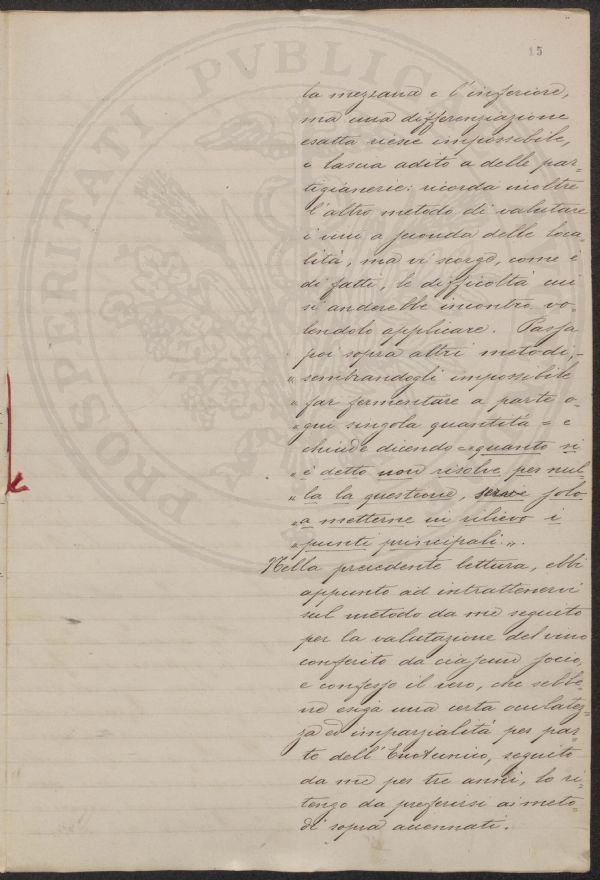 15
PROSPERITATI PVBLICAE
la mezzana e l'inferiore,
ma una differenziazione
esatta riesce impossibile,
e lascia adito a delle par=
tigianerie: ricorda inoltre
l'altro metodo di valutare
i vini a seconda delle loca=
lità, ma vi scorge, come è
di fatti, le difficoltà cui
si anderebbe incontro vo=
lendolo applicare. Passa
poi sopra altri metodi, -
" sembrandogli impossibile
" far fermentare a parte o=
" gni singola quantità = e
chiude dicendo = quanto si
" è detto non risolve per nul=
" la la questione, serve solo
" a metterne in rilievo i
" punti principali. ".
Nella precedente lettura, ebbi
appunto ad intrattenervi
sul metodo da me seguito
per la valutazione del vino
conferito da ciascun socio,
e confesso il vero, che sebbe=
ne esiga una certa oculatez=
za ed imparzialità per par=
te dell'Enotecnico, seguito
da me per tre anni, lo ri=
tengo da preferirsi ai meto=
di sopra accennati.